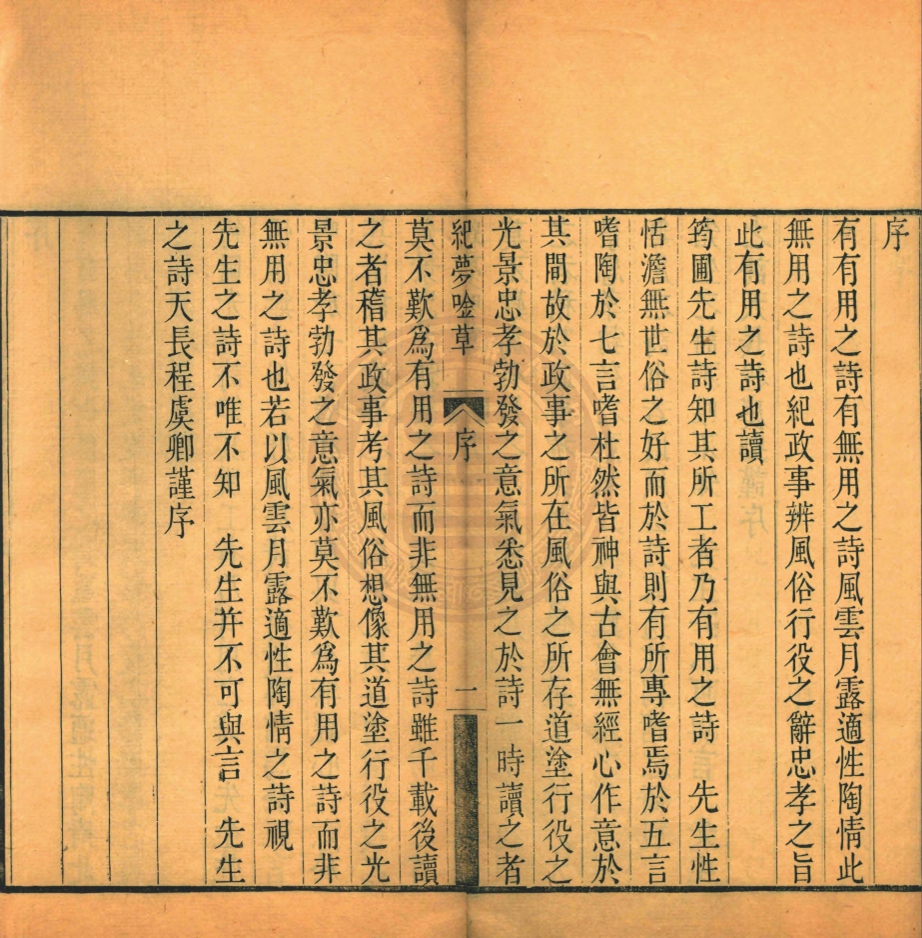 序
有有用之詩有無用之詩風雲月露適性陶情此
無用之詩也紀政事辨風俗行役之辭忠孝之旨
此有用之詩也讀
筠圃先生詩知其所工者乃有用之詩　先生性
恬澹無世俗之好而於詩則有所專嗜焉於五言
嗜陶於七言嗜杜然皆神與古會無經心作意於
其間故於政事之所在風俗之所存道塗行役之
光景忠孝勃發之意氣悉見之於詩一時讀之者
紀夢唫草　序　一
莫不歎爲有用之詩而非無用之詩雖千載後讀
之者稽其政事考其風俗想像其道塗行役之光
景忠孝勃發之意氣亦莫不歎爲有用之詩而非
無用之詩也若以風雲月露適性陶情之詩視
先生之詩不唯不知　先生并不可與言　先生
之詩天長程虞卿謹序